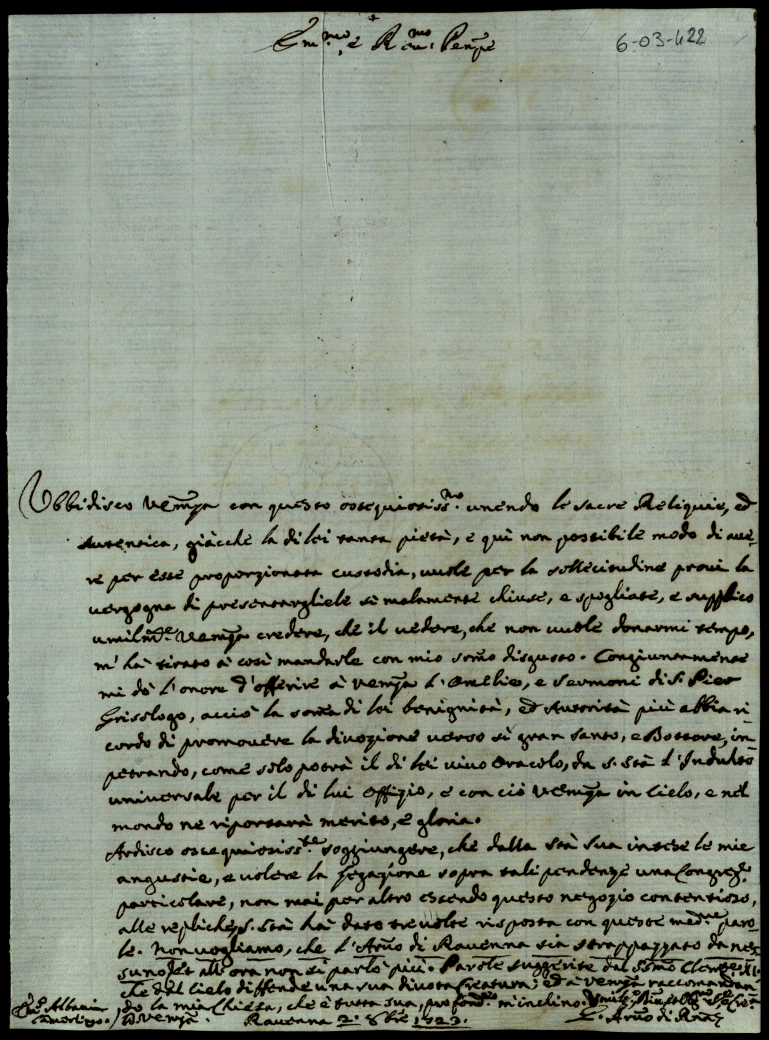 Em.mo e Rev.mo Penpe
6-03-422
Ubbidisco VEmza con questo ossequiosiss.mo unendo le sacre Reliquie, ed
Autentica, giacchè la di lei tanta pietà, e quì non possibile modo di ave-
re per esse proporzionata custodia, vuole per la sollecitudine provi la
vergogna di presentargliele sì malamente chiuse, e spogliate, e supplico
umilm.te VEmza credere, che il vedere, che non vuole donarmi tempo,
m'hà tirato à così mandarle con mio somo disgusto. Congiuntamente
mi dò l'onore d'offerire à VEmza l'Omelie, e Sermoni di S. Pier
Grisologo, acciò la soma di lei benignità, ed Autorità più abbia ri-
cordo di promovere la divozione verso sì gran santo, e Dottore, im-
petrando, come solo potrà il di lei vivo oracolo, da S. Stà l'Indulto
universale per il di lui Offizio, e con ciò VEmza in Cielo, e nel
mondo ne riportarà merito, e gloria.
Ardisco ossequiosiss.te soggiungere, che dalla Stà Sua intese le mie
angustie, e volere la sopra tali pendenze una Congreg.
particolare, non mai per altro essendo questo negozio contenzioso,
alle repliche, S. Stà hà dato tre volte risposta con queste med.me paro-
le. Non vogliamo, che l'Arño di Ravenna sia strappazzato da nes-
suno, ed all'ora non si parlò più. Parole suggerite dal SSmo Clemente XI
che dal Cielo diffende una sua divota Creatura; ed à VEmza raccomandan-
do la mia Chiesa, che è tutta sua, prof.te m'inchino.
Albani
Camerlingo. DVEmza.
Ravenna 2. 8bre 1723.
G. Arño di Rna